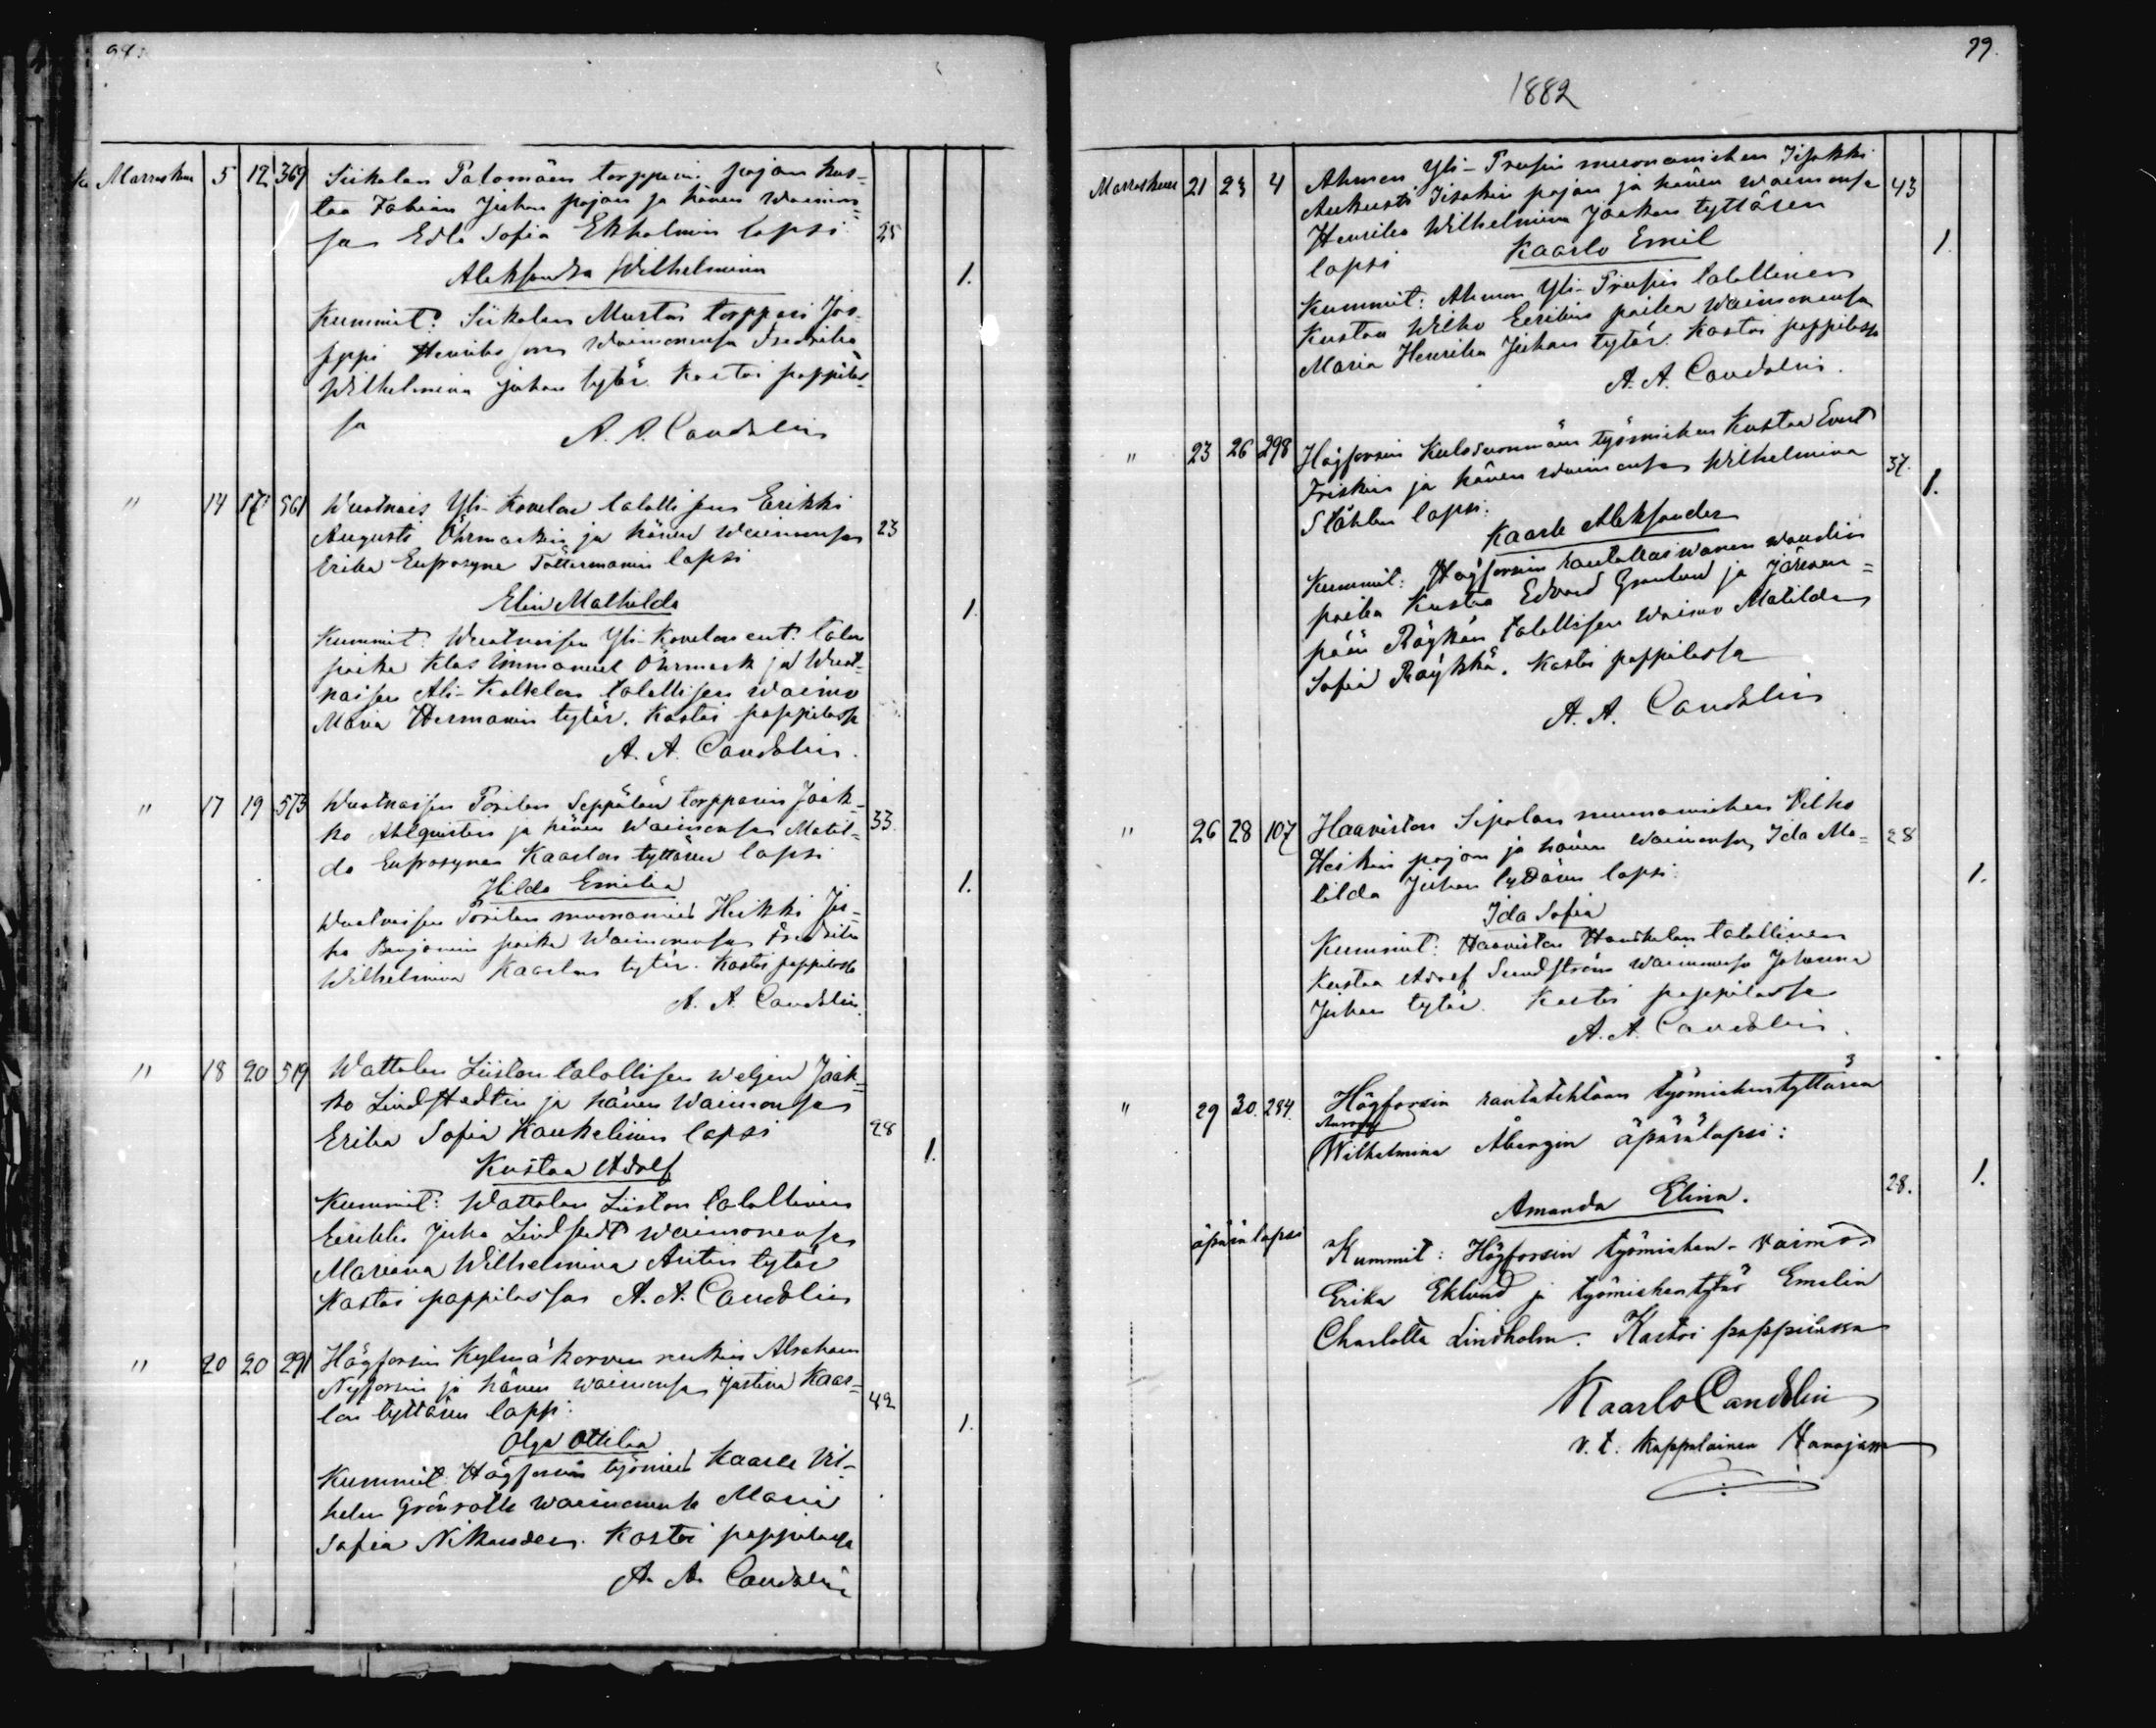 98.
Marraskuu 5 12 369 Siikalan Palomäen torpparin pojan Kus-
taa Fabian Juhan pojan ja hänen waimon-
sa Edla Sofia Ekholmin lapsi 25
Aleksandra Wilhelmina 1.
Kummit: Siikalan Mustan torppari Joo-
seppi Henriksson waimonensa Fredrika
Wilhelmina Juhan tytär. Kastoi pappilas-
sa
A. A. Candolin
" 14 17 561 Wuotnais Yli-Kovelan talollisen Eerikki
Augusti Öhrmarkin ja hänen waimonsa 23
Erika Euprosyne Töttermanin lapsi
Elin Mathilda 1.
Kummit: Wuotnaisen Yli-Kovelan ent. talon
poika Klas Immanuel Öhrmark ja Wuot-
naisen Ali-Kolkelan talollisen waimo
Maria Hermanin tytär. Kastoi pappilassa
A. A. Candolin.
" 17 19 573 Wuotnaisen Porilan Seppälän torpparin Jaak-
ko Ahlquistin ja hänen waimonsa Matil- 33.
da Euprosyne Kaarlon tyttären lapsi
Hilda Emilia 1.
Wuotnaisen Porilan muonamies Heikki Ju-
ho Benjamin poika waimonensa Fredrika
Wilhelmina Kaarlon tytär. Kastoi pappilassa
A. A. Candolin.
" 18 20 519 Wattolan Liiston talollisen weljen Jaak-
ko Lindstedtin ja hänen waimonsa
Erika Sofia Kaukelinin lapsi 28
Kustaa Adolf 1.
Kummit: Wattolan Liiston talollinen
Eerikki Juho Lindstedt waimonensa
Mariana Wilhelmina Antin tytär
Kastoi pappilassa A. A. Candolin
" 20 20 291 Högforsin Kylmäkorven renkin Abraham
Nyforsin ja hänen waimonsa Justina Kaar- 42
lon tyttären lapsi:
Olga Ottilia 1.
Kummit: Högforsin työmies Kaarle Vil-
helm Grönroth waimonensa Maria
Sofia Nikander. Kastoi pappilassa
A. A. Candolin
99.
1882
Marraskuu 21 23 4 Ahmon Yli-Prusin muonamiehen Iisakki
Aukusti Iisakin pojan ja hänen waimonsa 43
Henrika Wilhelmina Jaakon tyttären
lapsi Kaarlo Emil 1.
Kummit: Ahmon Yli-Prusin talollinen
Kustaa Wilho Eerikin poika waimonensa
Maria Henrika Juhan tytär. Kastoi pappilassa
A. A. Candolin.
" 23 26 298 Högforsin Kulosuonmäen työmiehen Kustaa Evert
Friskin ja hänen waimonsa Wilhelmina 37.
Ståhlen lapsi: 1.
Kaarle Aleksander
Kummit: Högforsin rautakaiwanen woudin
poika Kustaa Edvard Granlund ja Järwen-
pään Röykän talollisen waimo Matilda
Sofia Röykkä. Kastoi pappilassa
A. A. Candolin
" 26 28 107 Haaviston Sipolan muonamiehen Vilho
Heikin pojan ja hänen waimonsa Ida Ma- 28
tilda Juhan tyttären lapsi: 1.
Ida Sofia
Kummit: Haaviston Haukelan talollinen
Kustaa Adolf Sundström waimonensa Johanna
Juhan tytär. Kastoi pappilassa
A. A. Candolin.
" 29 30. 284. Högforsin rautatehtaan työmiehentyttären
Wilhelmina Åbergin äpärälapsi:
Amanda Elina. 28. 1.
äpärälapsi Kummit: Högforsin työmiehen-vaimo
Erika Eklund ja työmiehentytär Emelia
Charlotta Lindholm. Kastoi pappilassa
Kaarlo Candolin
v. t. Kappalainen Vanajassa